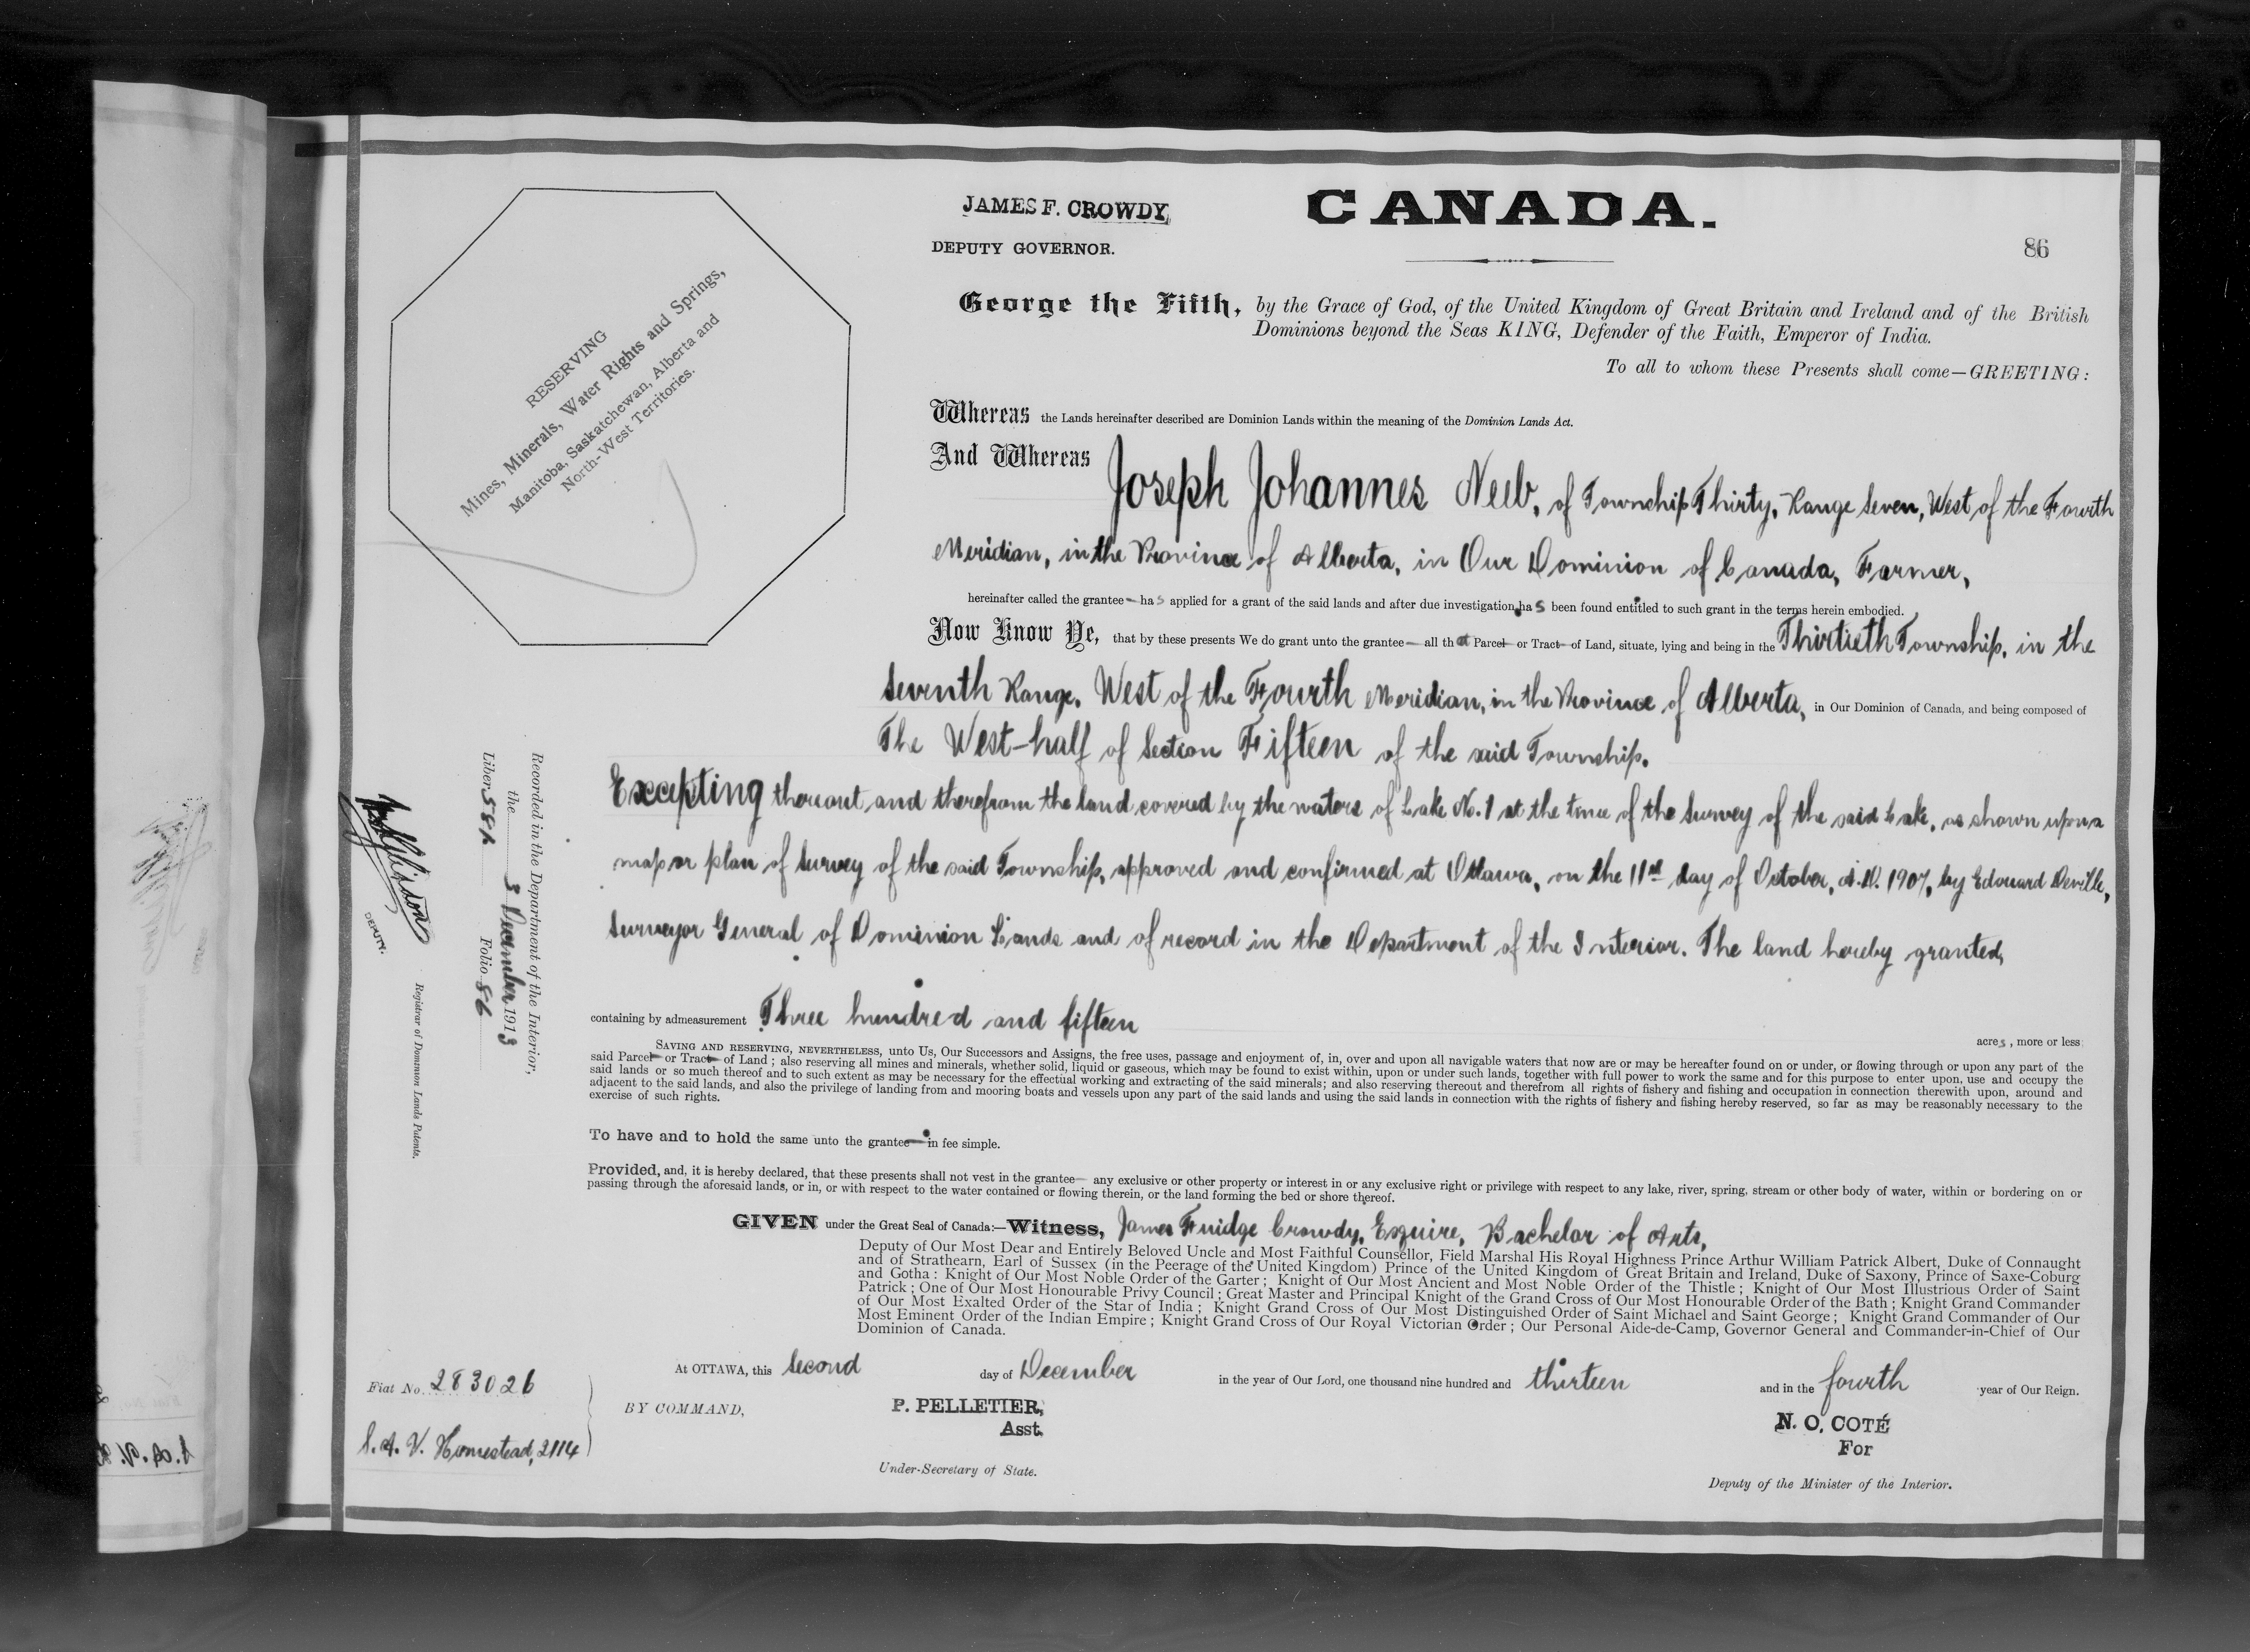 JAMES F. CROWDY
DEPUTY GOVERNOR.
CANADA.
86
RESERVING
Mines, Minerals, Water Rights and Springs,
Manitoba, Saskatchewan, Alberta and
North-West Territories.
George the Fifth, by the Grace of God, of the United Kingdom of Great Britain and Ireland and of the British
Dominions beyond the Seas KING, Defender of the Faith, Emperor of India.
To all to whom these Presents shall come—GREETING:
Whereas the Lands hereinafter described are Dominion Lands within the meaning of the Dominion Lands Act.
And Whereas Joseph Johannes Neeb, of Township Thirty, Range Seven, West of the Fourth
Meridian, in the Province of Alberta, in Our Dominion of Canada, Farmer,
hereinafter called the grantee — has applied for a grant of the said lands and after due investigation has been found entitled to such grant in the terms herein embodied.
Now Know Ye, that by these presents We do grant unto the grantee — all that Parcel or Tract of Land, situate, lying and being in the Thirtieth Township, in the
Seventh Range, West of the Fourth Meridian, in the Province of Alberta, in Our Dominion of Canada, and being composed of
The West-half of Section Fifteen of the said Township.
Excepting thereout and therefrom the land covered by the waters of Lake No. 1 at the time of the Survey of the said Lake, as shown upon a
map or plan of Survey of the said Township, approved and confirmed at Ottawa, on the 11th day of October, A.D. 1907, by Edouard Deville,
Surveyor General of Dominion Lands and of record in the Department of the Interior. The land hereby granted,
containing by admeasurement Three hundred and fifteen acres, more or less
SAVING AND RESERVING, NEVERTHELESS, unto Us, Our Successors and Assigns, the free uses, passage and enjoyment of, in, over and upon all navigable waters that now are or may be hereafter found on or under, or flowing through or upon any part of the
said Parcel or Tract of Land; also reserving all mines and minerals, whether solid, liquid or gaseous, which may be found to exist within, upon or under such lands, together with full power to work the same and for this purpose to enter upon, use and occupy the
said lands or so much thereof and to such extent as may be necessary for the effectual working and extracting of the said minerals; and also reserving thereout and therefrom all rights of fishery and fishing and occupation in connection therewith upon, around and
adjacent to the said lands, and also the privilege of landing from and mooring boats and vessels upon any part of the said lands and using the said lands in connection with the rights of fishery and fishing hereby reserved, so far as may be reasonably necessary to the
exercise of such rights.
To have and to hold the same unto the grantee — in fee simple.
Provided, and, it is hereby declared, that these presents shall not vest in the grantee — any exclusive or other property or interest in or any exclusive right or privilege with respect to any lake, river, spring, stream or other body of water, within or bordering on or
passing through the aforesaid lands, or in, or with respect to the water contained or flowing therein, or the land forming the bed or shore thereof.
GIVEN under the Great Seal of Canada:—Witness, James Fuidge Crowdy, Esquire, Bachelor of Arts,
Deputy of Our Most Dear and Entirely Beloved Uncle and Most Faithful Counsellor, Field Marshal His Royal Highness Prince Arthur William Patrick Albert, Duke of Connaught
and of Strathearn, Earl of Sussex (in the Peerage of the United Kingdom) Prince of the United Kingdom of Great Britain and Ireland, Duke of Saxony, Prince of Saxe-Coburg
and Gotha: Knight of Our Most Noble Order of the Garter; Knight of Our Most Ancient and Most Noble Order of the Thistle; Knight of Our Most Illustrious Order of Saint
Patrick; One of Our Most Honourable Privy Council; Great Master and Principal Knight of the Grand Cross of Our Most Honourable Order of the Bath; Knight Grand Commander
of Our Most Exalted Order of the Star of India; Knight Grand Cross of Our Most Distinguished Order of Saint Michael and Saint George; Knight Grand Commander of Our
Most Eminent Order of the Indian Empire; Knight Grand Cross of Our Royal Victorian Order; Our Personal Aide-de-Camp, Governor General and Commander-in-Chief of Our
Dominion of Canada.
At OTTAWA, this Second day of December in the year of Our Lord, one thousand nine hundred and thirteen and in the fourth year of Our Reign.
BY COMMAND,
P. PELLETIER,
Asst.
Under-Secretary of State.
N. O. COTÉ
For
Deputy of the Minister of the Interior.
Fiat No. 283026
S. A. V. Homestead, 2114
Recorded in the Department of the Interior,
the 3 December 1913
Liber 581 Folio 86
DEPUTY.
Registrar of Dominion Lands Patents.